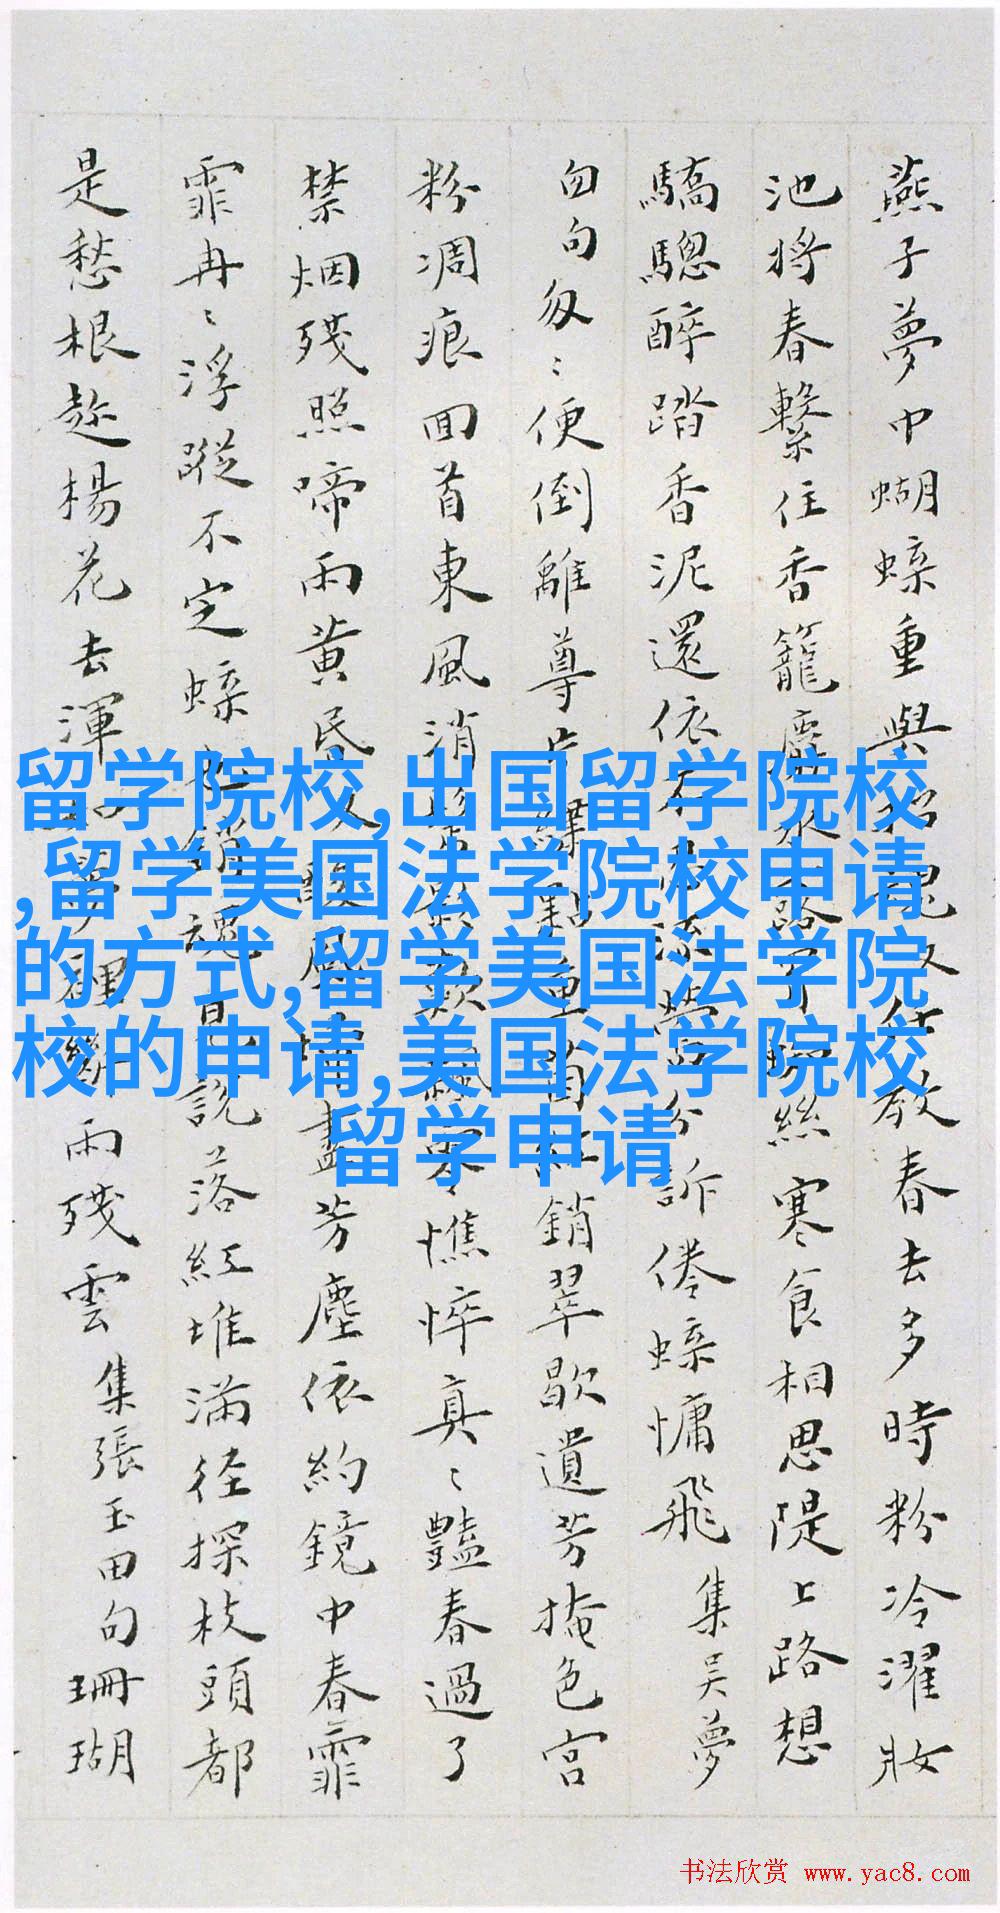 燕子夢中蝴蜨重與招魂又任教春去多時粉冷濯妝
池將春繫住香籠麝水絲寒食相思隄上路想
驕驄醉踏香泥還依不訴倦蜨慵飛 集吳夢
囱句匆〻便倒離尊片重銷翠歇遺芳掩色宮
粉凋痕回首東風消零憔悴真〻豔春過了
禁烟殘照啼雨黃昏風盡芳塵依約鏡中春霏
霏冉〻浮蹤不定蜨銷魂見說落紅堆滿徑探枝頭都
是愁根趁楊花去渾夢裡斷雨殘雲 集張玉田句珊瑚
留学院校,出国留学院校
,留学美国法学院校申请
的方式,留学美国法学院
校的申请,美国法学院校
留学申请
书法欣赏 www.yac8.com